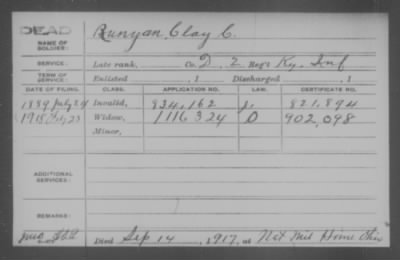 DEAD
NAME OF SOLDIER: Runyan, Clay C.
SERVICE: Late rank, Co. D, 2 Reg't Ky. Inf
TERM OF SERVICE: Enlisted , 1 Discharged , 1
DATE OF FILING. CLASS. APPLICATION NO. LAW. CERTIFICATE NO.
1889 July 24 Invalid, 834,162 821,894
1918 Widow, 1116324 902,098
Minor,
ADDITIONAL SERVICES:
REMARKS:
Died Sep 14, 1917, at Nat Mil Home Ohio